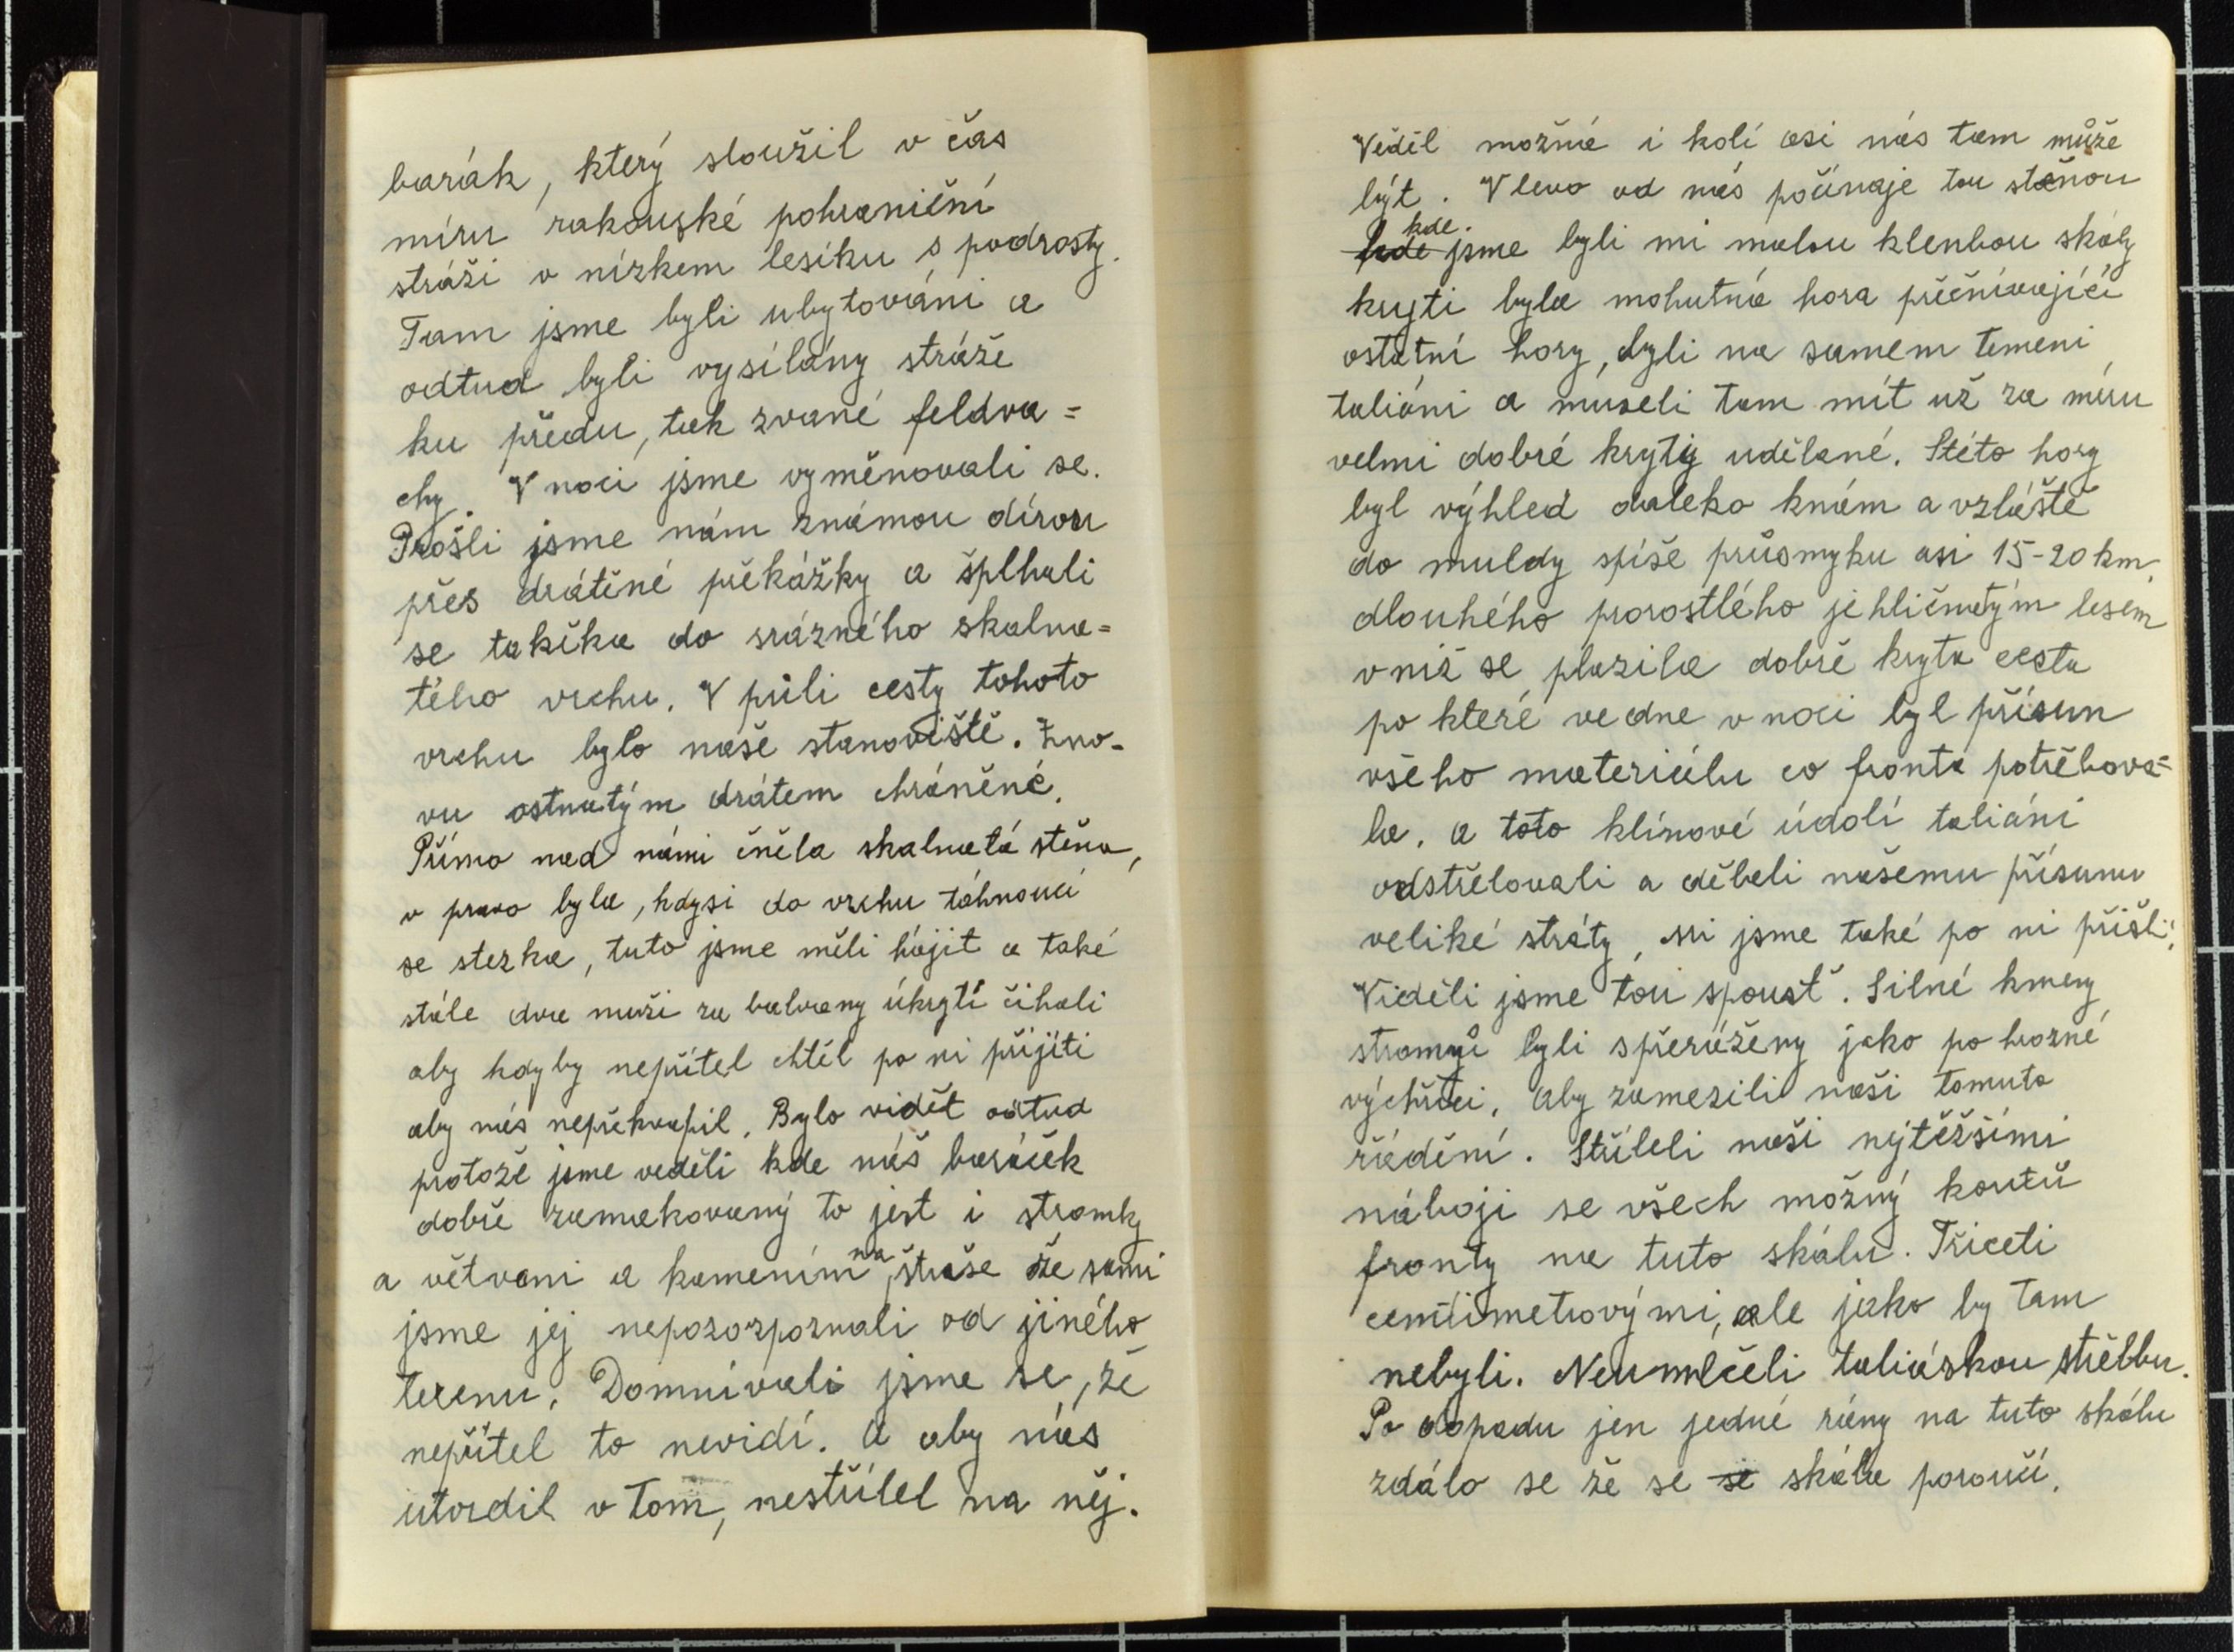 barák, který sloužil v čas
míru rakouské pohraniční
stráži v nízkem lesíku s podrosty.
Tam jsme byli ubytováni a
odtud byli vysílány stráže
ku předu, tak zvané feldva=
chy. V noci jsme vyměnovali se.
Prošli jsme nám známou dírou
přes drátěné překážky a šplhali
se takřka do srázného skalna=
tého vrchu. V půli cesty tohoto
vrchu bylo naše stanoviště. Zno-
vu ostnatým drátem chráněné.
Přímo nad námi čněla skalnatá stěna,
v pravo byla, kdysi do vrchu táhnoucí
se stezka, tuto jsme měli hájit a také
stále dva muži za balvany úkrytí číhali
aby kdyby nepřítel chtěl po ni přijíti
aby nás nepřekvapil. Bylo vidět odtud
protože jsme veděli kde náš baráček
dobře zamakovaný to jest i stromky
a větvemi a kamením na střaše že sami
jsme jej nepozorpoznali od jiného
terenu. Domnívali jsme se, že
nepřítel to nevidí. A aby nás
utvrdil v tom, nestřílel na něj.
Věděl možná i kolí asi nás tam může
být. V levo od nás počínaje tou stěnou
kde kde jsme byli mi malou klenbou skály
kryti byla mohutná hora přečnívající
ostatní hory, byli na samem temeni
taliáni a múseli tam mít už za míru
velmi dobré kryty udělané. Stéto hory
byl výhled daleko knám a vzláště
do muldy spíše průsmyku asi 15-20 km.
dlouhého porostlého jehličnatým lesem
v níž se plazila dobře kryta cesta
po které ve dne v noci byl přísun
všeho materiálu co fronta potřebova=
la. a toto klínové údolí taliáni
odstřelovali a děbali našemu přísunu
veliké stráty, mi jsme také po ni přišli;
Viděli jsme tou spoušť. Silné kmeny
stromů byli spřeráženy jako po hrozné
výchřici. Aby zamezili naši tomuto
řádění. Stříleli naši nejtěžšími
náboji se všech možný koutů
fronty na tuto skálu. Třiceti
centimetrovými, ale jako by tam
nebyli. Neumlčeli taliáskou střelbu.
Po dopadu jen jedné rány na tuto skálu
zdálo se že se se skála poroučí.